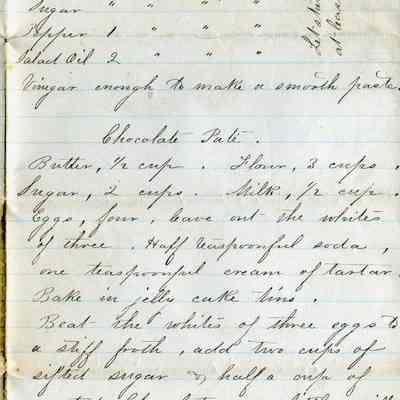 Sugar " " " "
Pepper 1 " " "
Salad Oil 2 " " "
Vinegar enough to make a smooth paste.
Let st
at leas
Chocolate Paté.
Butter, 1/2 cup. Flour, 3 cups.
Sugar, 2 cups. Milk, 1/2 cup.
Eggs, four, leave out the whites
of three. Half teaspoonful soda,
one teaspoonful cream of tartar.
Bake in jelly cake tins.
Beat the whites of three eggs to
a stiff froth, add two cups of
sifted sugar & half a cup of